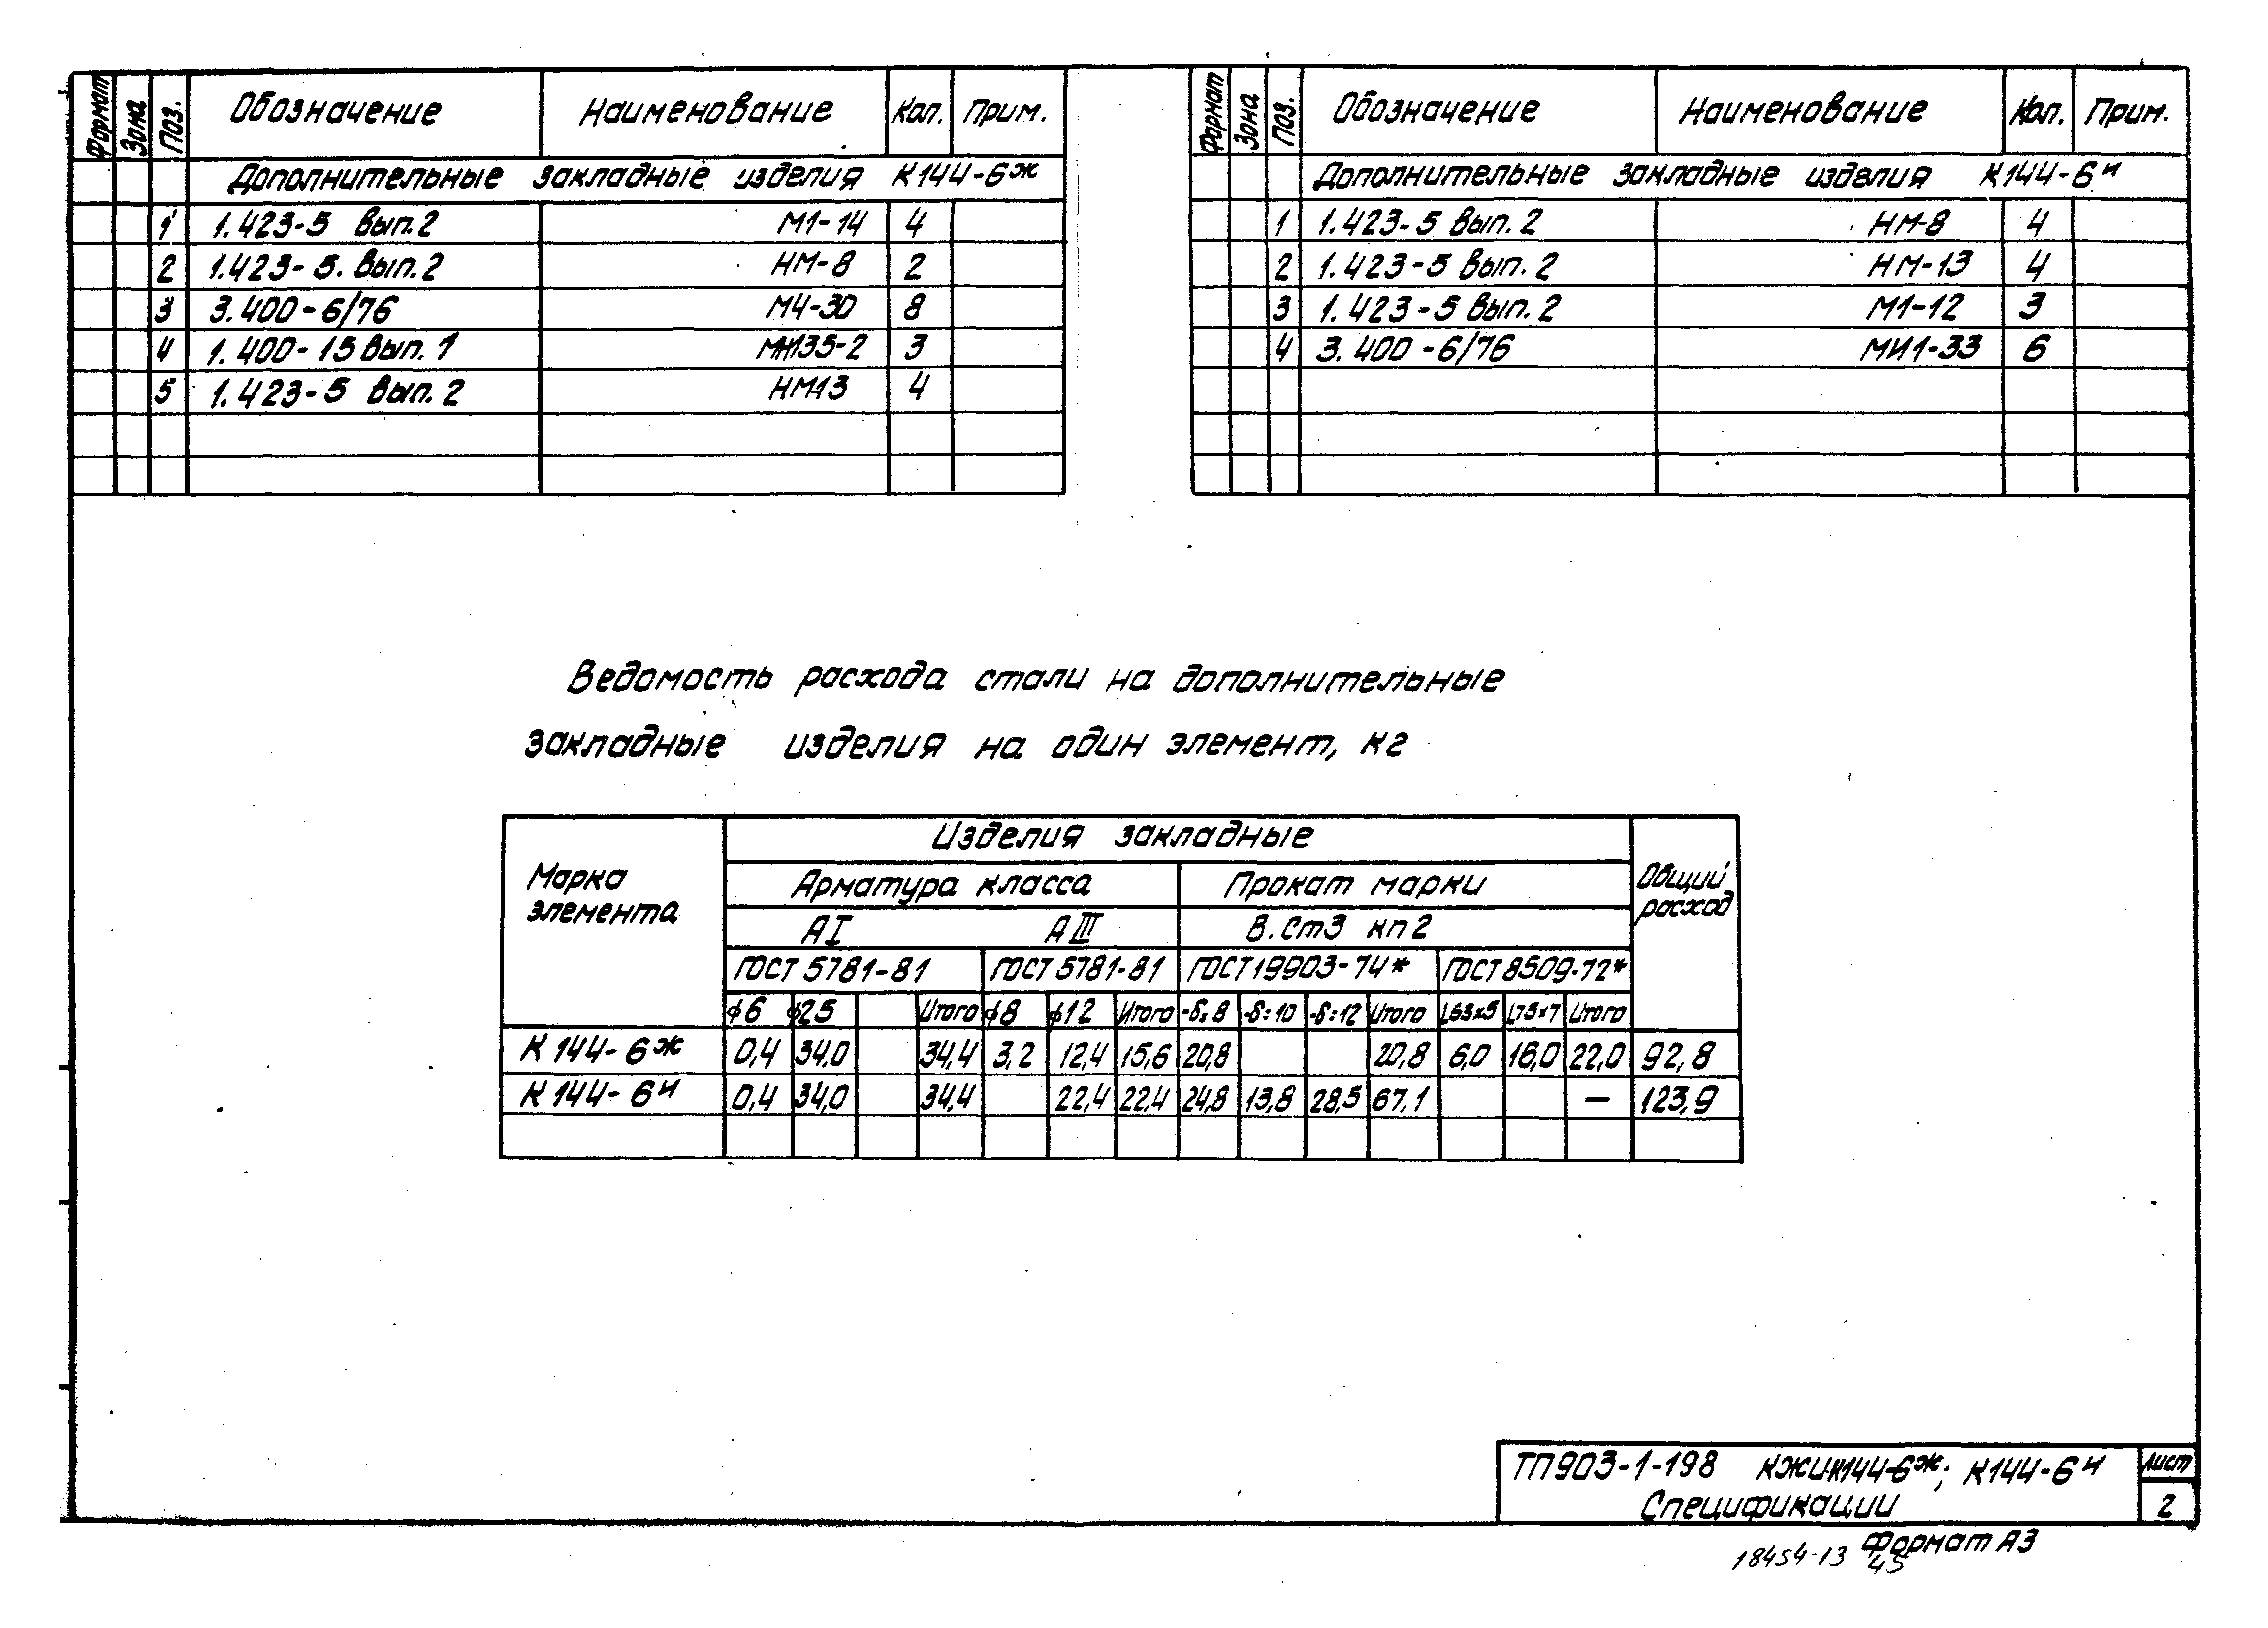 Формат Зона Поз. Обозначение Наименование Кол. Прим.
Дополнительные закладные изделия К144-6ж
1 1.423-5 вып.2 М1-14 4
2 1.423-5. вып.2 НМ-8 2
3 3.400-6/76 М4-30 8
4 1.400-15 вып.1 МН135-2 3
5 1.423-5 вып.2 НМ13 4
Формат Зона Поз. Обозначение Наименование Кол. Прим.
Дополнительные закладные изделия К144-6и
1 1.423-5 вып.2 НМ-8 4
2 1.423-5 вып.2 НМ-13 4
3 1.423-5 вып.2 М1-12 3
4 3.400-6/76 МИ1-33 6
Ведомость расхода стали на дополнительные
закладные изделия на один элемент, кг
Марка элемента Изделия закладные Общий расход
Арматура класса Прокат марки
АI АIII В.Ст3 кп2
ГОСТ 5781-81 ГОСТ 5781-81 ГОСТ 19903-74* ГОСТ 8509-72*
ф6 ф25 Итого ф8 ф12 Итого -δ:8 -δ:10 -δ:12 Итого L63х5 L75х7 Итого
К144-6ж 0,4 34,0 34,4 3,2 12,4 15,6 20,8 20,8 6,0 16,0 22,0 92,8
К144-6и 0,4 34,0 34,4 22,4 22,4 24,8 13,8 28,5 67,1 — 123,9
ТП903-1-198 КЖИ-К144-6ж; К144-6и лист
Спецификации 2
Формат А3
18454-13 45